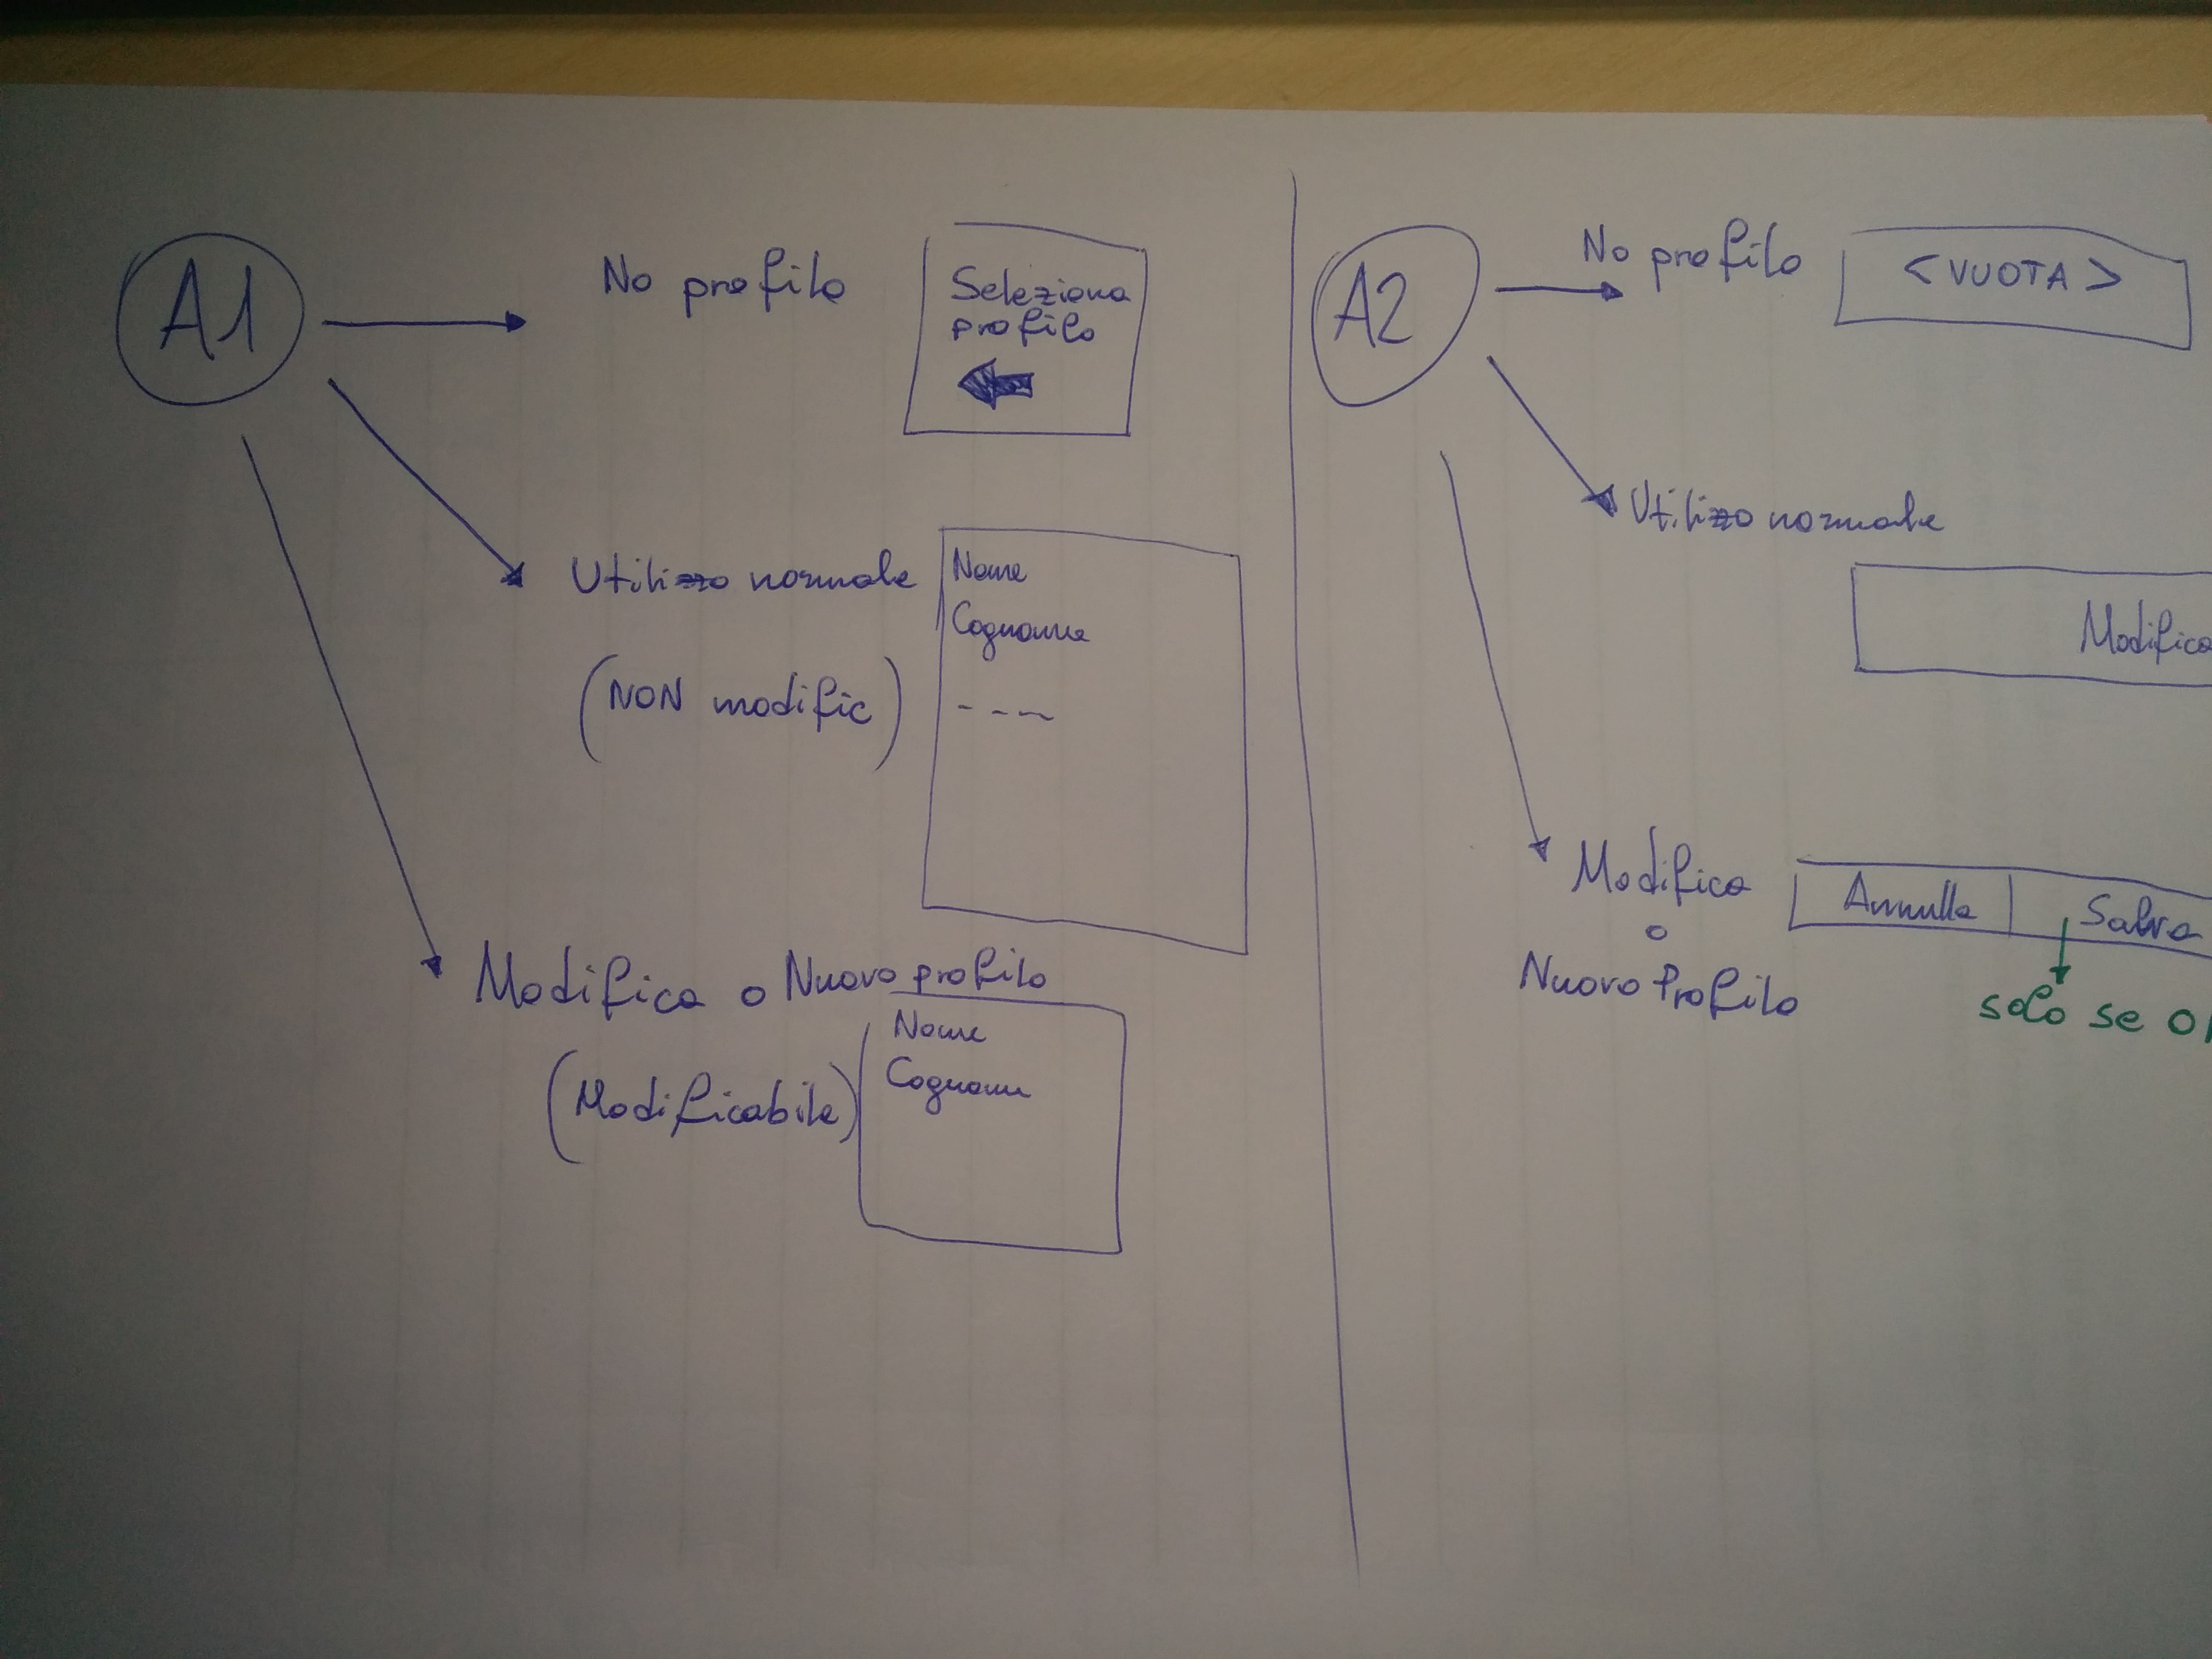 A1
No profilo
Seleziona
profilo
Utilizzo normale
(NON modific)
Nome
Cognome
---
Modifica o Nuovo profilo
(Modificabile)
Nome
Cognome
A2
No profilo
<VUOTA>
Utilizzo normale
Modifica
Modifica
o
Nuovo Profilo
Annulla
Salva
solo se